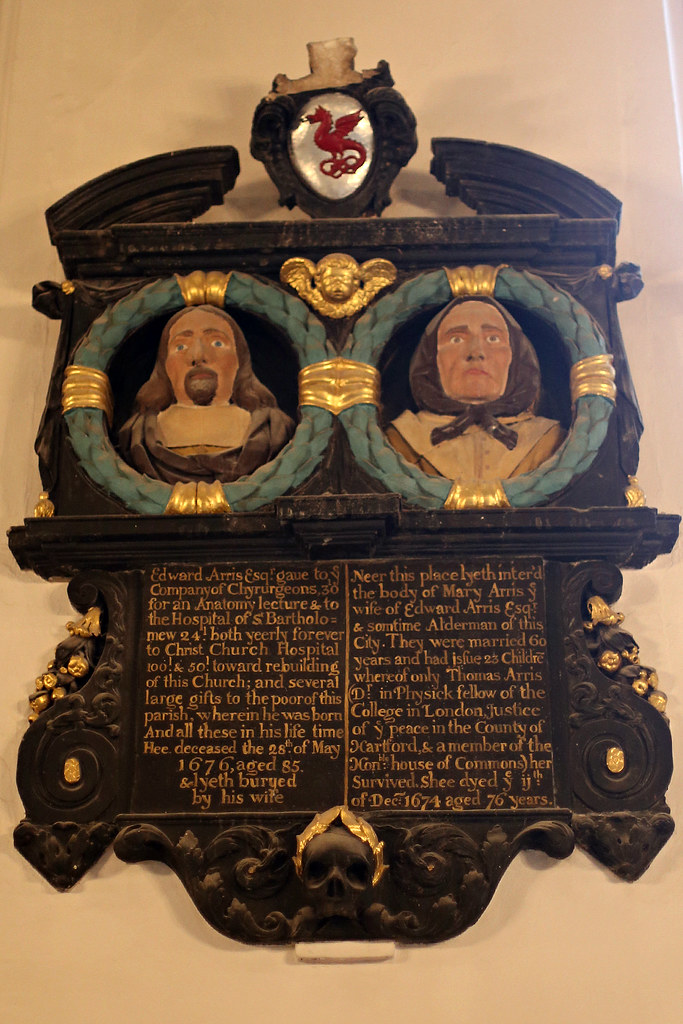 Edward Arris Esqr. gaue to yͤ
Company of Chyrurgeons, 30ˡ
for an Anatomy lecture & to
the Hospital of Sᵗ Bartholo=
mew 24ˡ. both yeerly for ever
to Christ Church Hospital
100ˡ. & 50ˡ. toward rebuilding
of this Church; and several
large gifts to the poor of this
parish, wherein he was born
And all these in his life time
Hee deceased the 28ᵗʰ. of May
1676, aged 85.
& lyeth buryed
by his wife
Neer this place lyeth inter'd
the body of Mary Arris yͤ
wife of Edward Arris Esqr.
& somtime Alderman of this
City. They were married 60
yeares and had issue 23 Childrē
whereof only Thomas Arris
Dʳ. in Physick fellow of the
College in London, Justice
of yͤ peace in the County of
Hartford, & a member of the
Honᵇˡᵉ: house of Commons) her
Survived. Shee dyed yͤ ijᵗʰ
of Decʳ. 1674 aged 76 years.